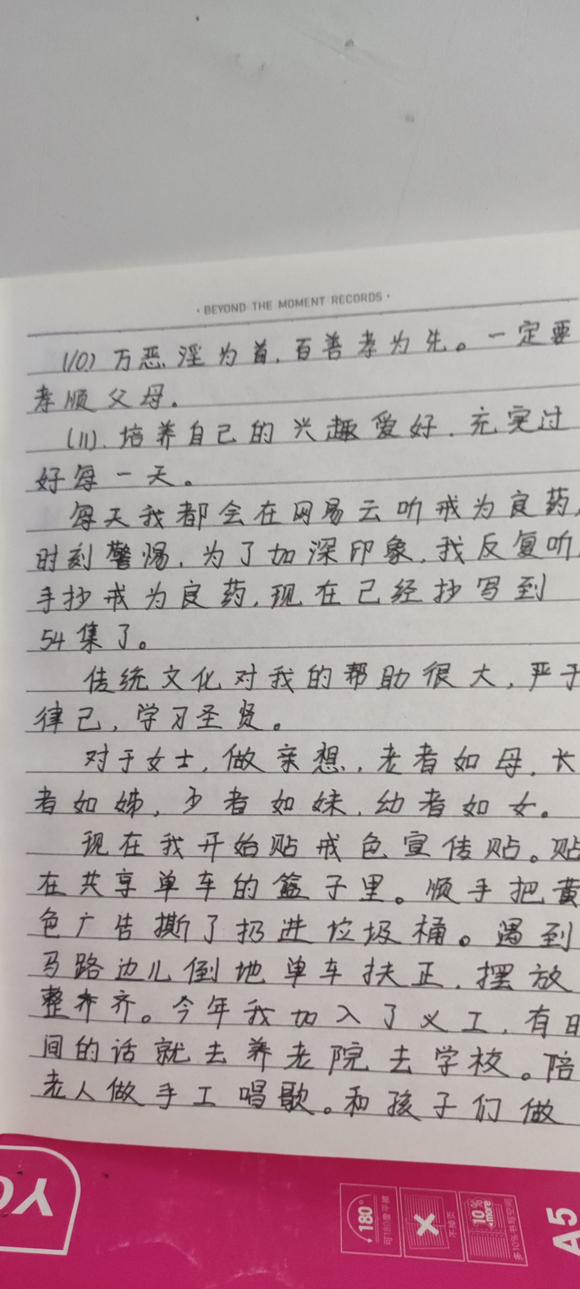 · BEYOND THE MOMENT RECORDS ·
(10) 万恶淫为首，百善孝为先。一定要
孝顺父母。
(11). 培养自己的兴趣爱好，充实过
好每一天。
每天我都会在网易云听戒为良药，
时刻警惕，为了加深印象，我反复听，
手抄戒为良药，现在己经抄写到
54集了。
传统文化对我的帮助很大，严于
律己，学习圣贤。
对于女士，做亲想，老者如母，长
者如姊，少者如妹，幼者如女。
现在我开始贴戒色宣传贴。贴
在共享单车的篮子里。顺手把黄
色广告撕了扔进垃圾桶。遇到
马路边儿倒地单车扶正，摆放
整齐。今年我加入了义工，有时
间的话就去养老院去学校。陪
老人做手工唱歌。和孩子们做
YO
180°
可180度平摊
不掉页
10%
more
多10%书写空间
A5